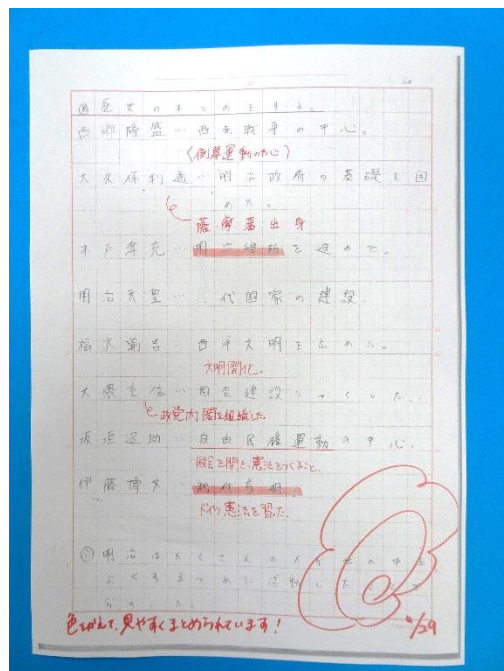 歴史のまとめをする。
西郷隆盛…西南戦争の中心。
(倒幕運動の中心)
大久保利通…明治政府の基礎を固
めた。
薩摩藩出身
木戸孝允…明治維新を進めた。
明治天皇… 代国家の建設.
福沢諭吉…西洋文明を広めた。
文明開化.
大隈重信…国会建設につくした.
政党内閣を組織した.
板垣退助…自由民権運動の中心.
国会を開き、憲法をつくること.
伊藤博文…
ドイツ憲法を習った.
明治はたくさんの人が世の中を
よくするために活動した
色をかえて、見やすくまとめられています!
/29